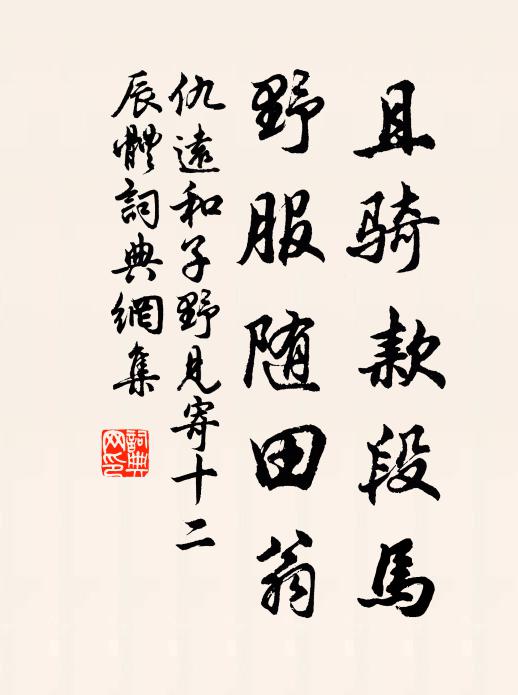 且骑款段馬
野服随田翁
仇遠和子野見寄十二
辰體詞典網集
詞典
网印